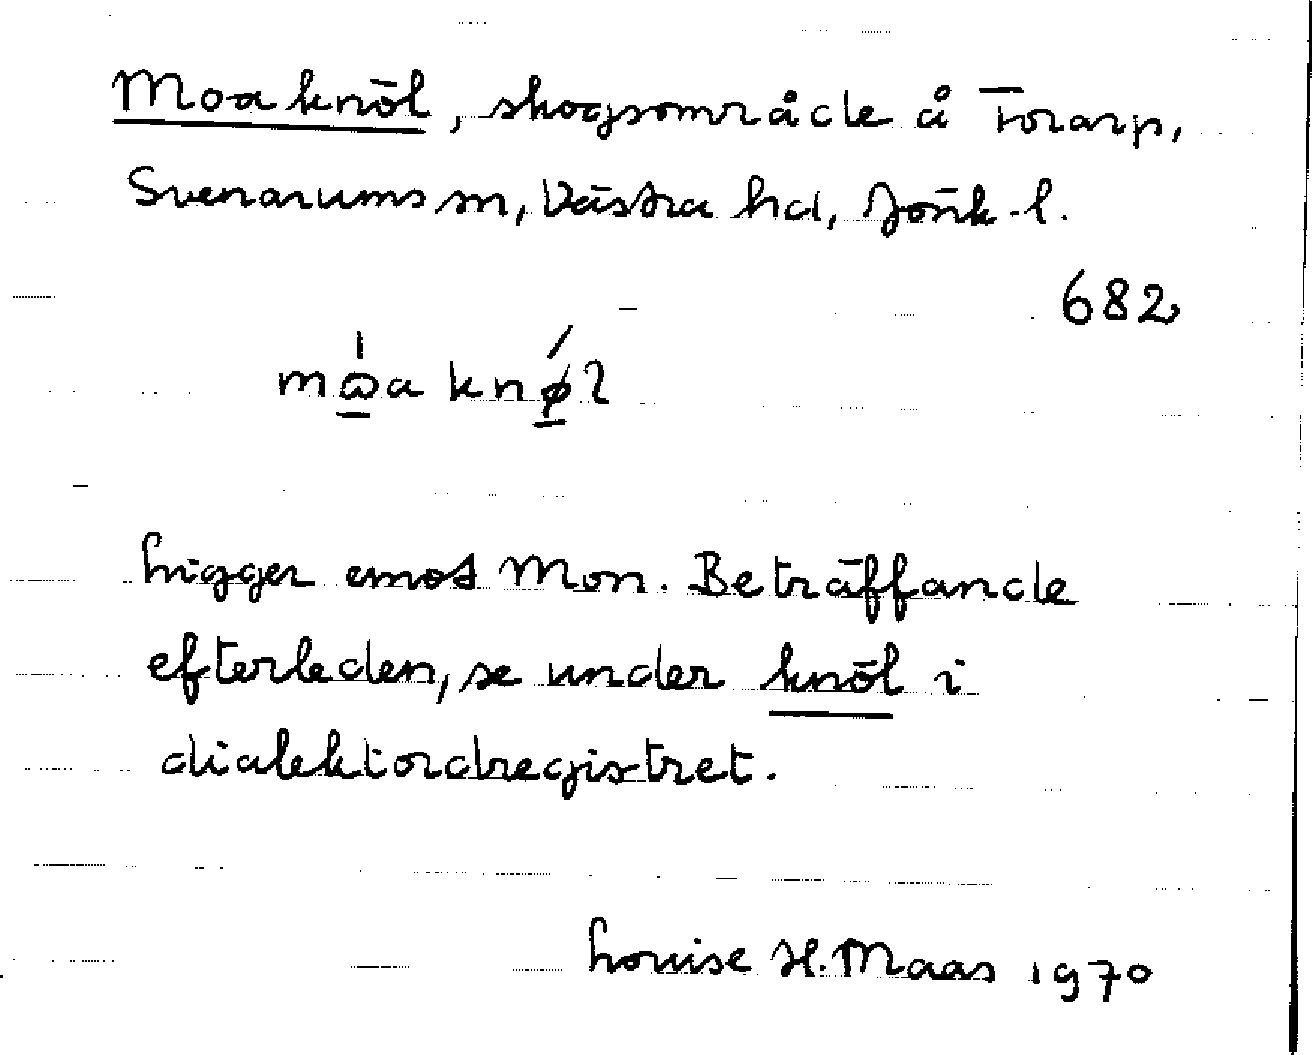 Moa knöl, skogsområde å Forarp,
Svenarums sn, Västra hd, Jönk. l.
682
Ligger emot Mon. Beträffande
efterleden, se under knöl i
dialektordregistret.
Louise H. Maas 1970